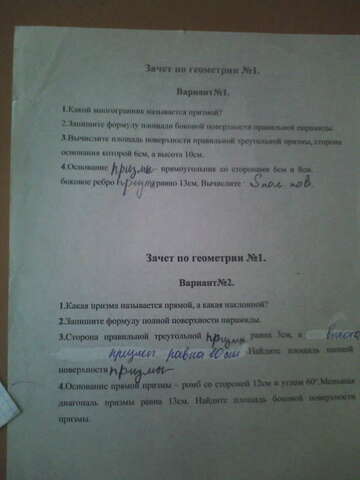 Зачет по геометрии №1.
Вариант№1.
1.Какой многогранник называется призмой?
2.Запишите формулу площади боковой поверхности правильной пирамиды.
3.Вычислите площадь поверхности правильной треугольной призмы, сторона
основания которой 6см, а высота 10см.
4.Основание призмы прямоугольник со сторонами 6см и 8см.
боковое ребро призмы равно 13см. Вычислите : Sпол пов.
Зачет по геометрии №1.
Вариант№2.
1.Какая призма называется прямой, а какая наклонной?
2.Запишите формулу полной поверхности пирамиды.
3.Сторона правильной треугольной призмы равна 3см, а высота
призмы равна 10см Найдите площадь полной
поверхности призмы
4.Основание прямой призмы – ромб со стороной 12см и углом 60°.Меньшая
диагональ призмы равна 13см. Найдите площадь боковой поверхности
призмы.